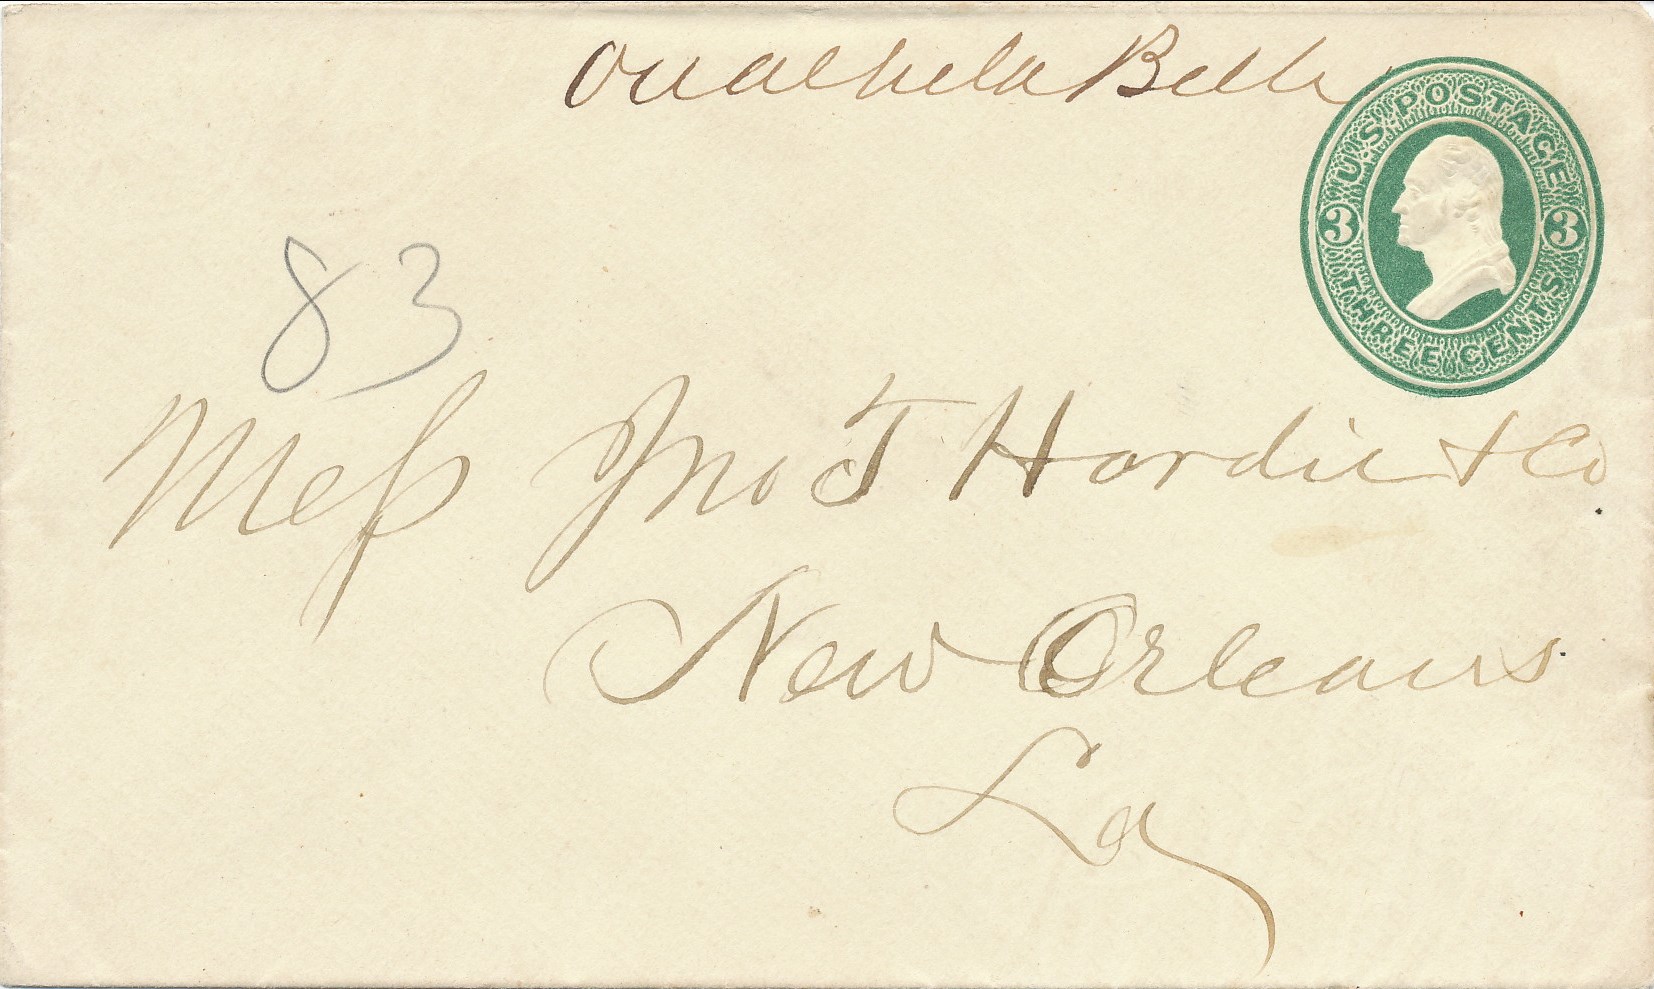 Ouachita Belle
U.S. POSTAGE
3 3
THREE CENTS
83
Mess Jno T Hardie & Co
New Orleans
La